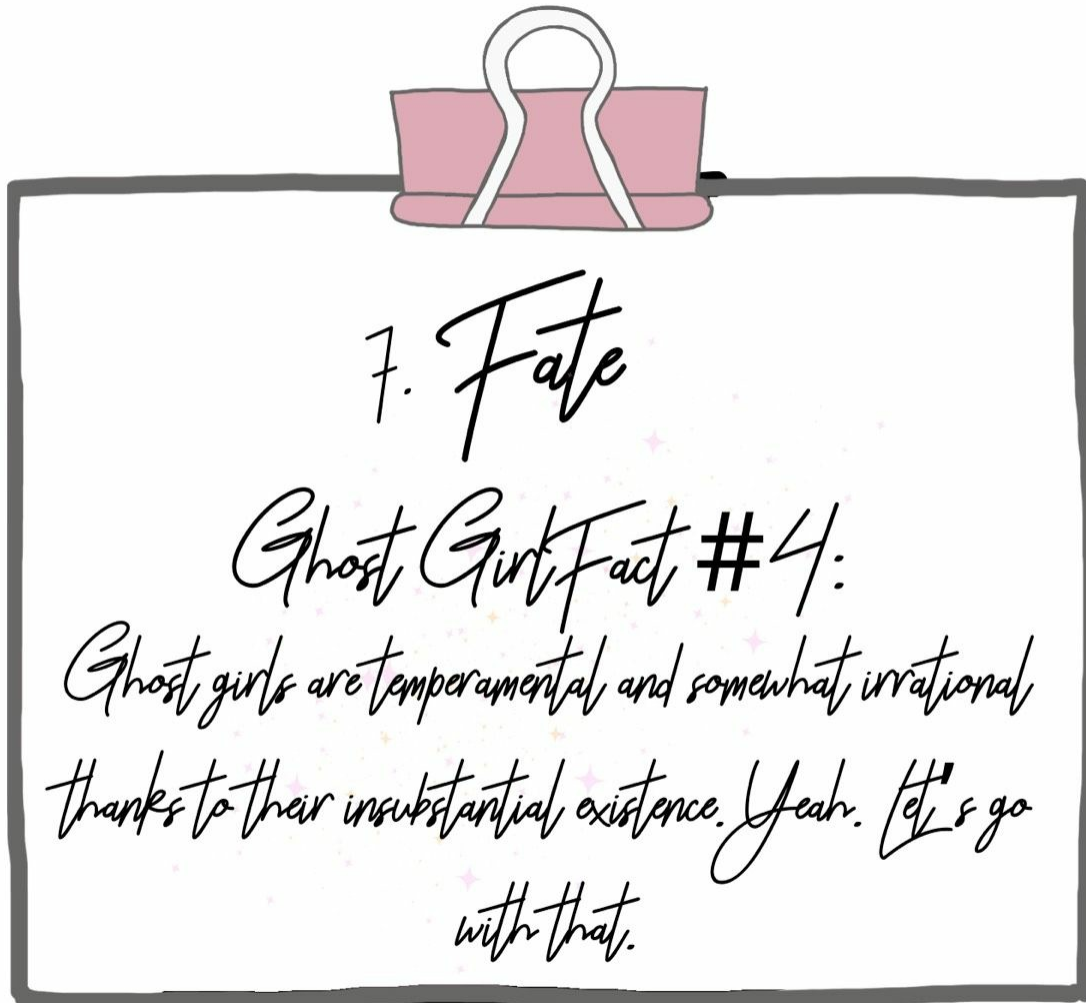 7. Fate
Ghost Girl Fact #4:
Ghost girls are temperamental and somewhat irrational
thanks to their insubstantial existence. Yeah. Let's go
with that.